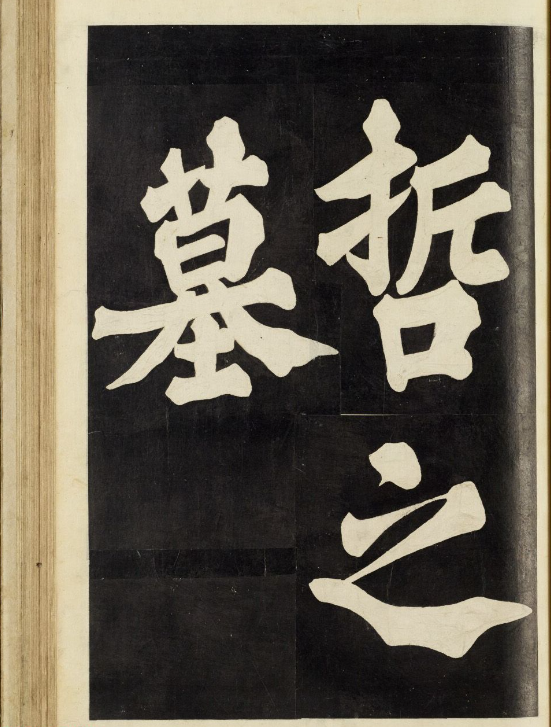 哲之
墓